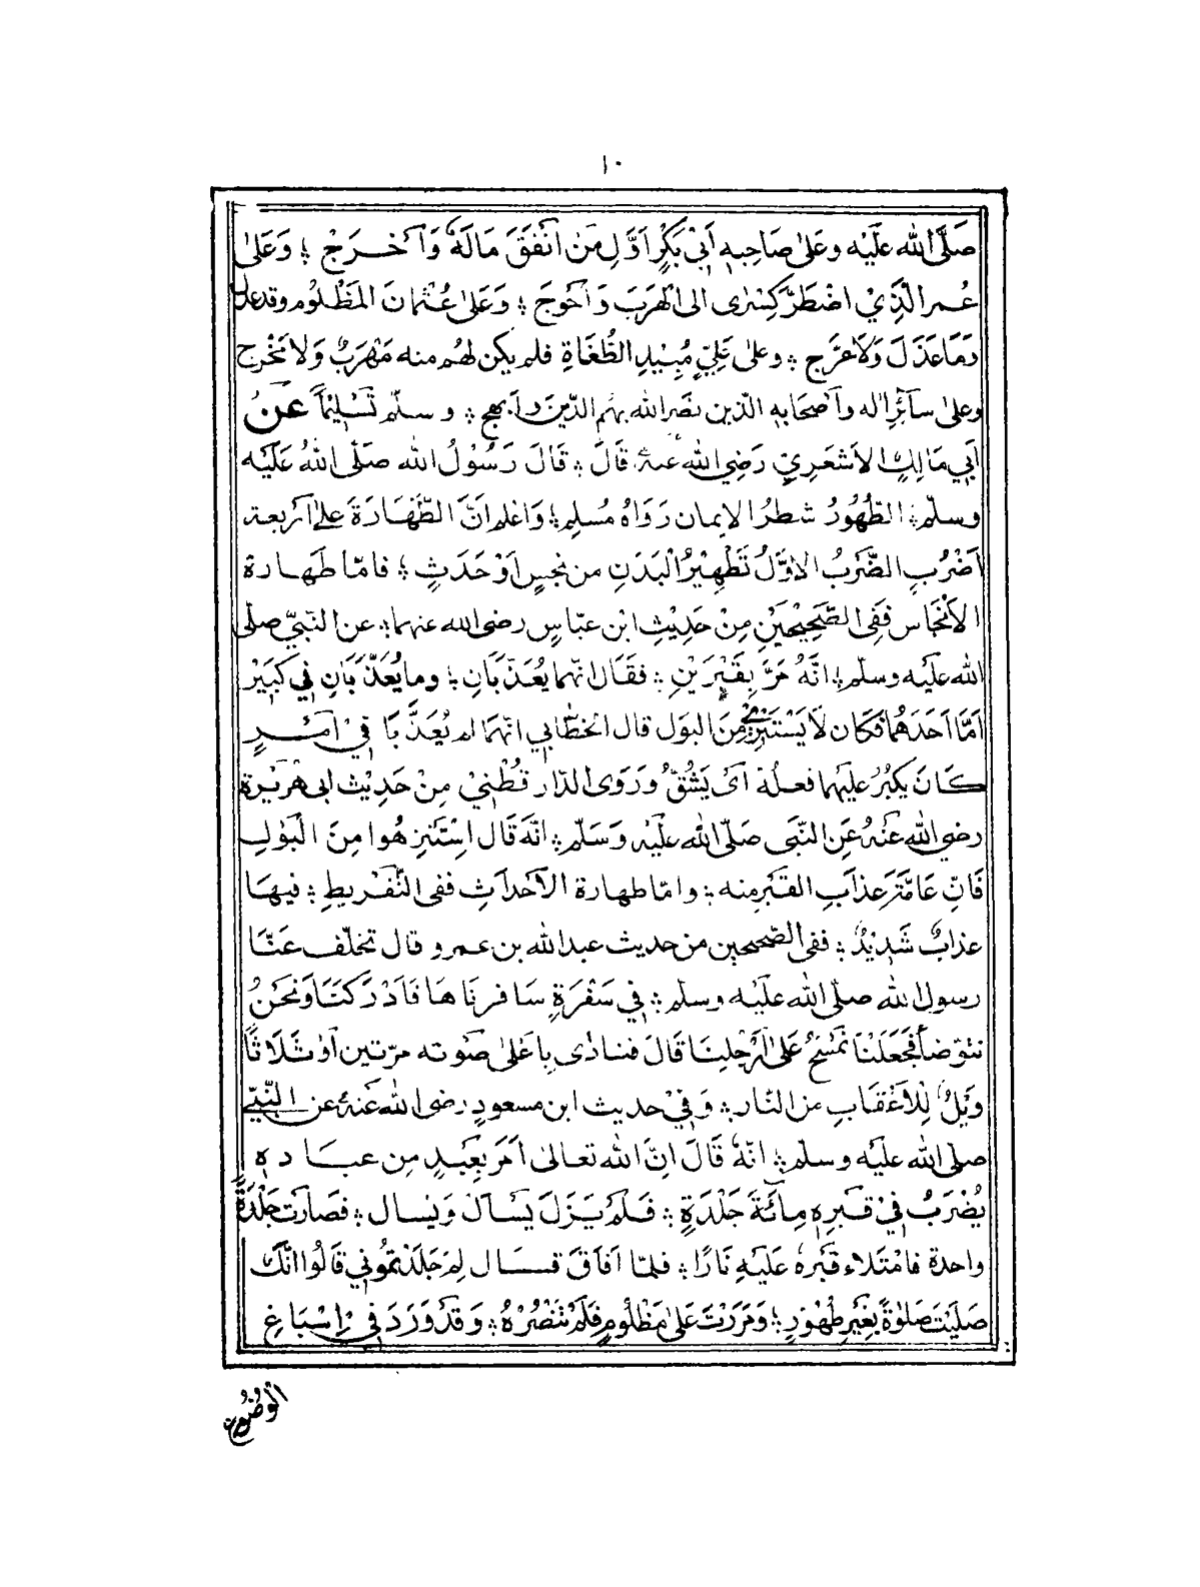 ١٠
صَلَّى الله عَلَيْه وعَلىٰ صَاحِبِهٖ اَبِيْ بَكْرٍ اَوَّلِ مَنْ اَنْفَقَ مَالَهٗ وَاَخْرَجْ ؛ وَعَلىٰ
عُمر الَّذِيْ اضْطَرَّ كِسْرٰى الى الْهَرَبَ وَاَحْوَجَ ؛ وَعَلىٰ عُثْمَانَ المَظْلُوْم وقد عدل
وَمَا عَذَلَ وَلَا عَرَّج ؛ وعلىٰ عَلِيٍّ مُبِيْدِ الطُّغَاةِ فلم يكن لهُم منه مَهْرَبٌ وَلا مَخْرج
وعلىٰ سآئِرِ اٰله واَصْحَابِهِ الّذين نصَر الله بهُم الدّين وابهج ؛ وسلّم تَسْلِيْمًا عَنْ
اَبِي مَالِكٍ الاَشعَرِيّ رَضِي الله عَنهُ قَالَ ؛ قَالَ رَسُوْلُ الله صَلّى اللهُ عَلَيْه
وسلّم ؛ الطُّهُوْرُ شطرُ الايمان رَوَاهُ مُسلِم ؛ وَاعْلم انَّ الطَّهَارَةَ عَلىٰ اَربعة
اَضْرُبٍ الضَّرَبُ الاوَّلُ تَطْهِيْرُ الْبَدَنِ من نجسٍ اَوْ حَدَثٍ ؛ فامّا طَهَارة
الاَنْجَاس فَفِى الصَّحِيْحَيْنِ مِنْ حَدِيْثِ ابْن عبّاسٍ رضى الله عنهما ؛ عن النّبيّ صلّى
الله عَليْه وسلّم ؛ انَّهُ مَرَّ بِقَبْرَيْنِ ؛ فقَال انّهما يُعَذَّبَانِ ؛ وما يُعَذَّبَانِ فِي كَبِيْر
اَمَّا اَحَدَهُمَا فَكَان لَا يَسْتَنْزِهُ مِنَ البوَل قال الخطَّابي انّهمَا لم يُعَذَّبَا فِيْ اَمْرٍ
كَانَ يَكْبُرُ عليهما فعلُهٗ اَىْ يَشُقُّ وَرَوَى الدّار قُطْنِيْ مِنْ حَدِيْث ابى هُرَيْرة
رضي الله عَنْهُ عَنِ النَّبِى صَلّى الله عَليْه وَسَلّم ؛ انّهَ قَال اسْتَنْزِهُوا مِنَ الْبَوْلِ
فَانّ عَامَّةَ عذَابِ القَبْرِ منه ؛ وامّا طهارة الاَحْدَاثِ ففى التَّفْرِيطِ ؛ فيهَا
عذابٌ شَدِيْدٌ ؛ ففى الصّحيحين من حديث عبد الله بن عمرو قال تخلّف عَنّا
رسول الله صلّى الله عَليْه وسلّم ؛ في سَفْرَةٍ سَافرنَاهَا فَاَدْرَكَنَا وَنَحْنُ
نتوَضأ فَجَعَلْنَا نَمْسَحُ عَلىٰ اَرْجُلِنَا قَالَ فنادٰى بِاَعْلىٰ صَوْته مرّتين اَوْ ثَلَاثًا
وَيْلٌ لِلْاَعْقَابِ من النّار ؛ وَفِيْ حديث ابن مسعودٍ رضى الله عَنْهُ عن النَّبِيّ
صلى الله عَليْه وسلّم ؛ انّهٗ قَالَ انَّ الله تعالىٰ اَمَرَ بِعَبْدٍ مِن عِبَادِهٖ
يُضْرَبُ فِيْ قَبْرِهٖ مِائَةَ جَلْدَةٍ ؛ فَلَمْ يَزَلْ يَسْأل وَيسال ؛ فصَارَت جَلْدَةً
واحدة فامْتَلاء قَبْرهٗ عَلَيْهِ نَارًا ؛ فلمّا اَفَاقَ قال لِمَ جَلَدْتمُوني قَالُوا انَّكَ
صَلَّيْتَ صَلٰوةً بِغَيْرِ طُهُوْرٍ ؛ وَمَرَرْتَ عَلىٰ مَظْلُومٍ فَلَمْ تَنْصُرْهُ ؛ وَقَدْ وَرَدَ فِي اِسْبَاغِ
الوُضُوْء